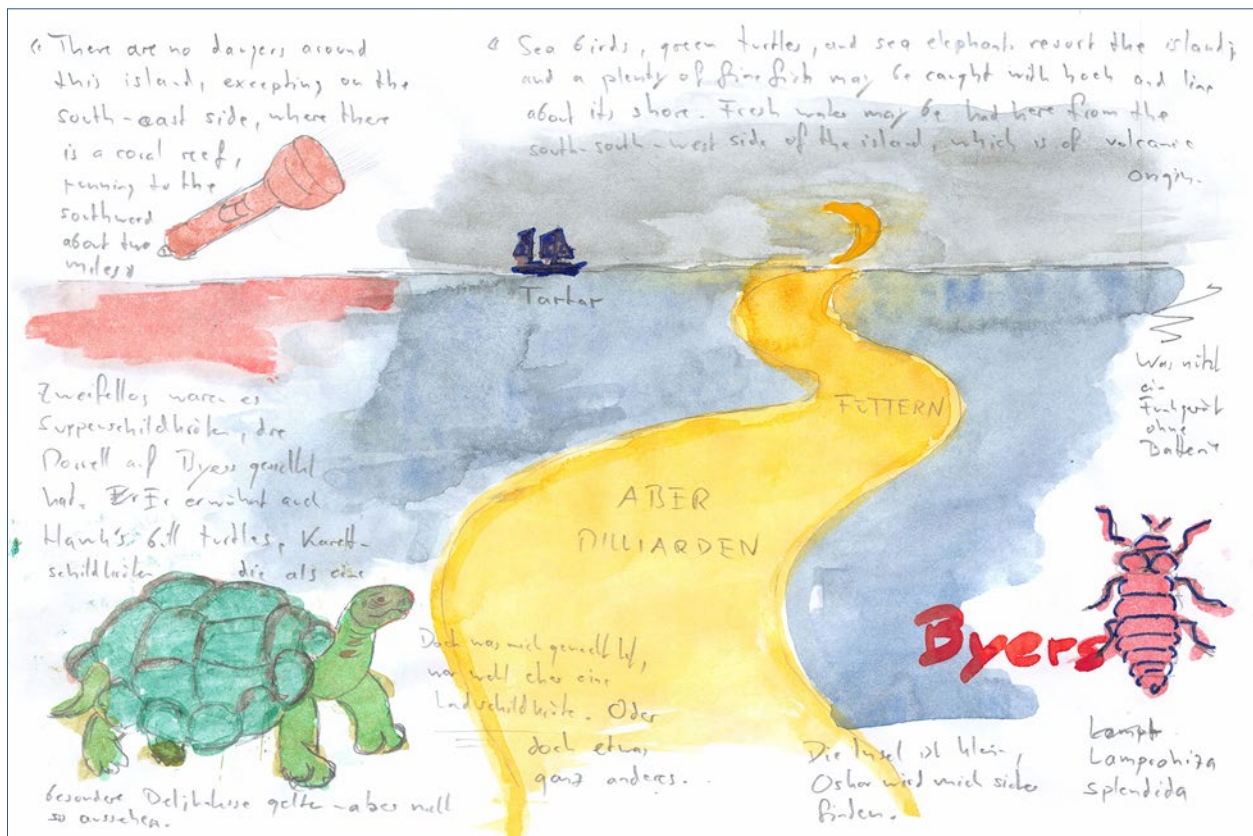 " There are no dangers around
this island, excepting on the
south-east side, where there
is a coral reef,
running to the
southward
about two
miles"
" Sea birds, green turtles, and sea elephants resort the island;
and a plenty of fine fish may be caught with hook and line
about its shore. Fresh water may be had here from the
south-south-west side of the island, which is of volcanic
origin.
Tartar
Zweifellos waren es
Suppenschildkröten, die
Morrell auf Byers
hat. Er erwähnt auch
Hawk's bill turtles, Karett-
schildkröten die als eine
besondere Delikatesse gelten - aber
so aussehen.
FÜTTERN
ABER
MILLIARDEN
Doch was mich geweckt hat,
war wohl eher eine
Landschildkröte. Oder
doch etwas
ganz anderes..
Was nützt
ein
Funkgerät
ohne
Batterie
Byers
Die Insel ist klein,
Oskar wird mich sicher
finden.
Lampr
Lamprohiza
splendida